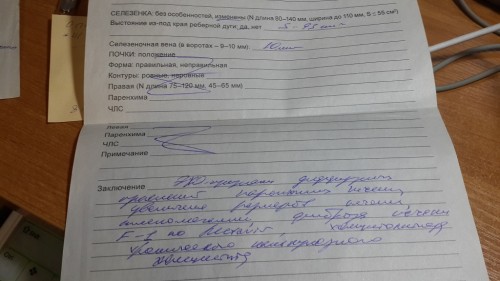 СЕЛЕЗЕНКА: без особенностей, изменены (N длина 80–140 мм, ширина до 110 мм, S ≤ 55 см²)
Выстояние из-под края реберной дуги: да, нет S - 95
Селезеночная вена (в воротах – 9–10 мм) 10 мм
ПОЧКИ: положение
Форма: правильная, неправильная
Контуры: ровные, неровные
Правая (N длина 75–120 мм, 45–65 мм)
Паренхима
ЧЛС
Левая
Паренхима
ЧЛС
Примечание
Заключение ЭХО-признаки диффузных
изменений паренхимы печени,
увеличения размеров печени,
спленомегалии, фиброза печени
F-2 по Metavir,
хронического калькулезного
холецистита